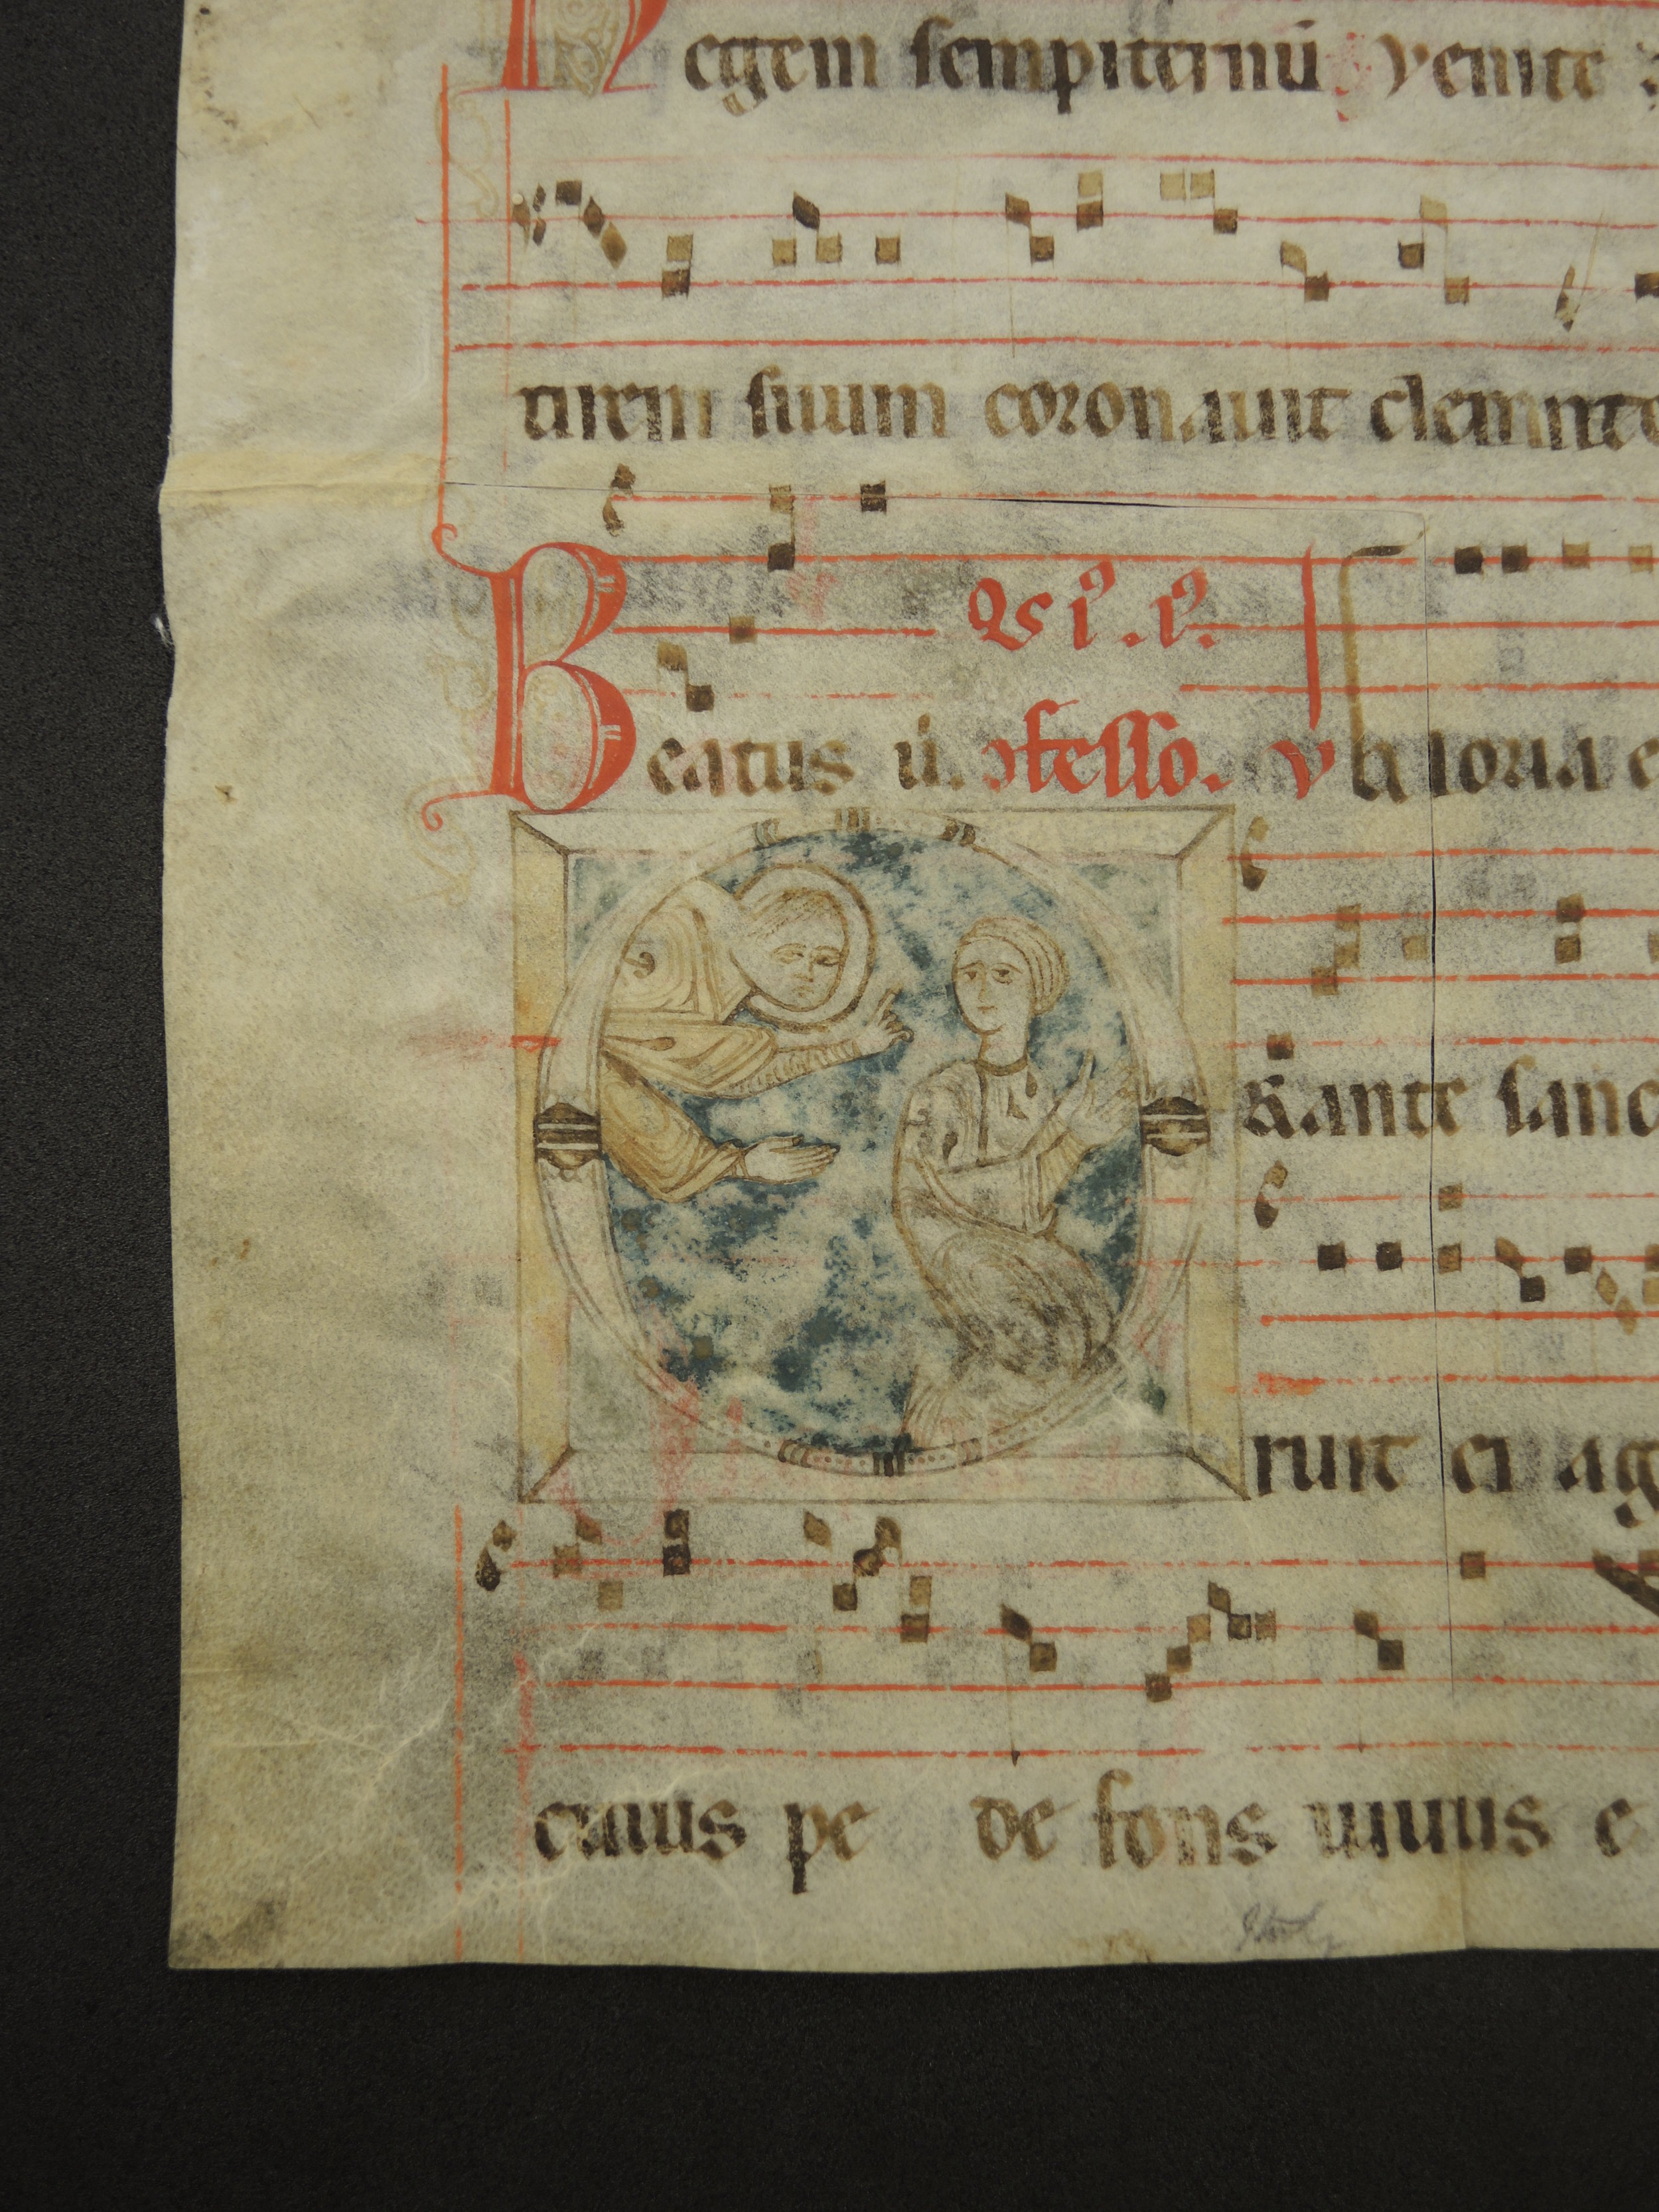 Regem sempiternū venite
turem suum coronauit clemente
℞ i⁹. i⁹.
Beatus ú. ɔfesso. v Gloria e
Orante sanc
ruit ei ag
cuius pe de fons uiuus e